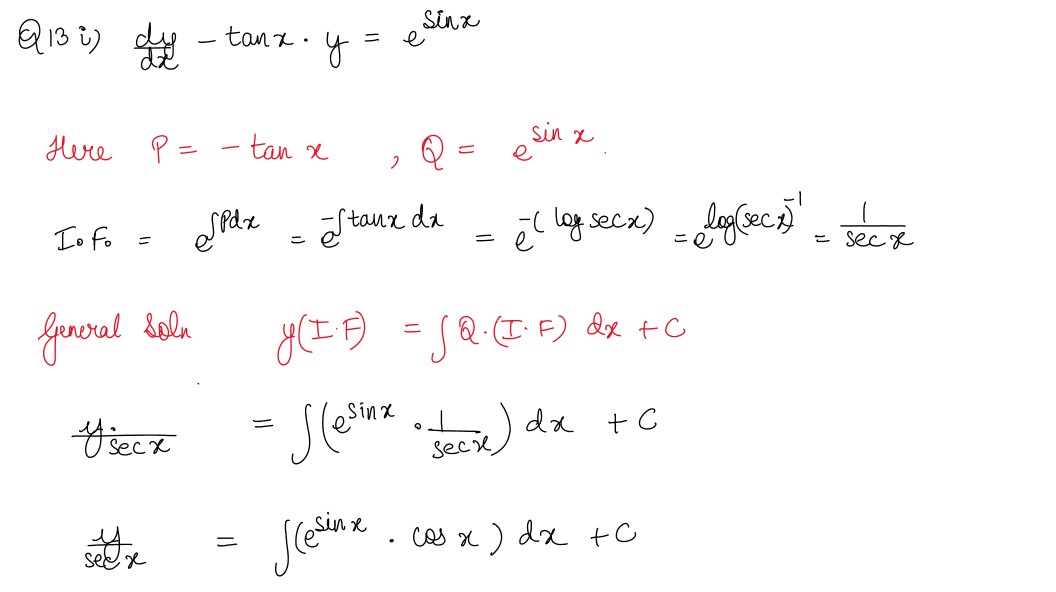 Q13 i) dy/dx - tanx · y = e^sinx
Here P = - tan x , Q = e^sin x.
I.F. = e^∫Pdx = e^-∫tanx dx = e^-(log secx) = e^log(secx)^-1 = 1/sec x
General Soln y(I·F) = ∫Q·(I·F) dx + C
y·/sec x = ∫(e^sinx · 1/secx) dx + C
y/sec x = ∫(e^sinx · cos x) dx + C